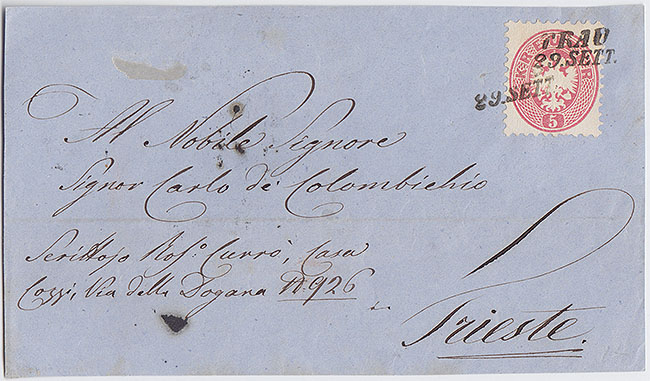 TRAU
29.SETT.
29.SETT.
5
Al Nobile Signore
Signor Carlo de Colombichio
Scrittojo Ros.º Currò, Casa
Cozzi, Via della Dogana N.926
Trieste.